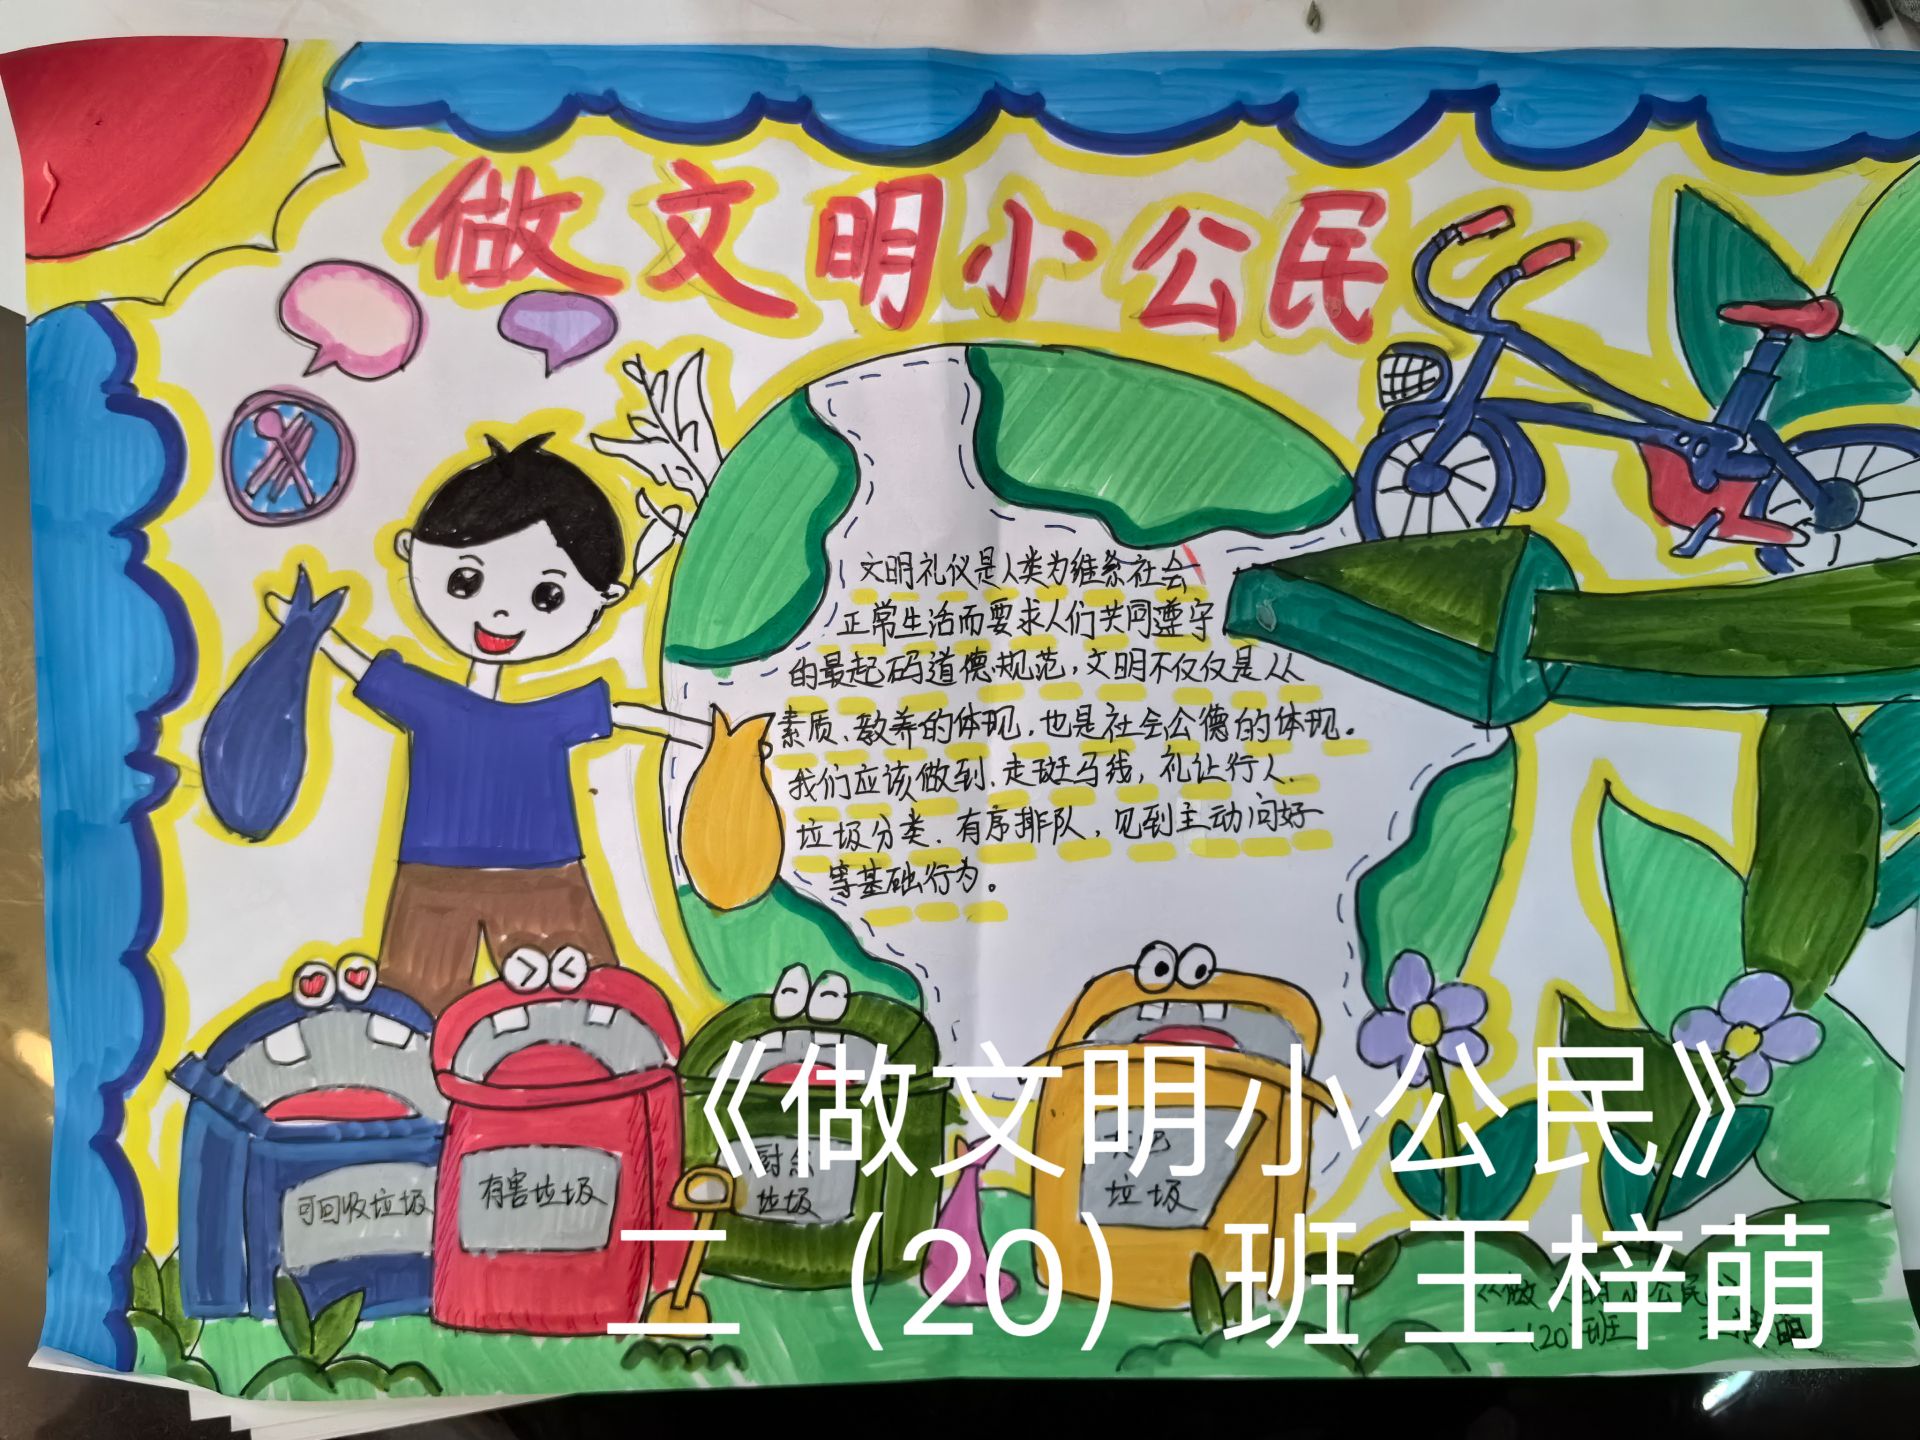 做文明小公民
文明礼仪是人类为维系社会
正常生活而要求人们共同遵守
的最起码道德规范，文明不仅仅是从
素质、教养的体现，也是社会公德的体现。
我们应该做到、走斑马线，礼让行人、
垃圾分类、有序排队，见到主动问好
等基础行为。
可回收垃圾
有害垃圾
厨余
垃圾
垃圾
《做文明小公民》
二（20）班 王梓萌
《做文明小公民》
二(20)班